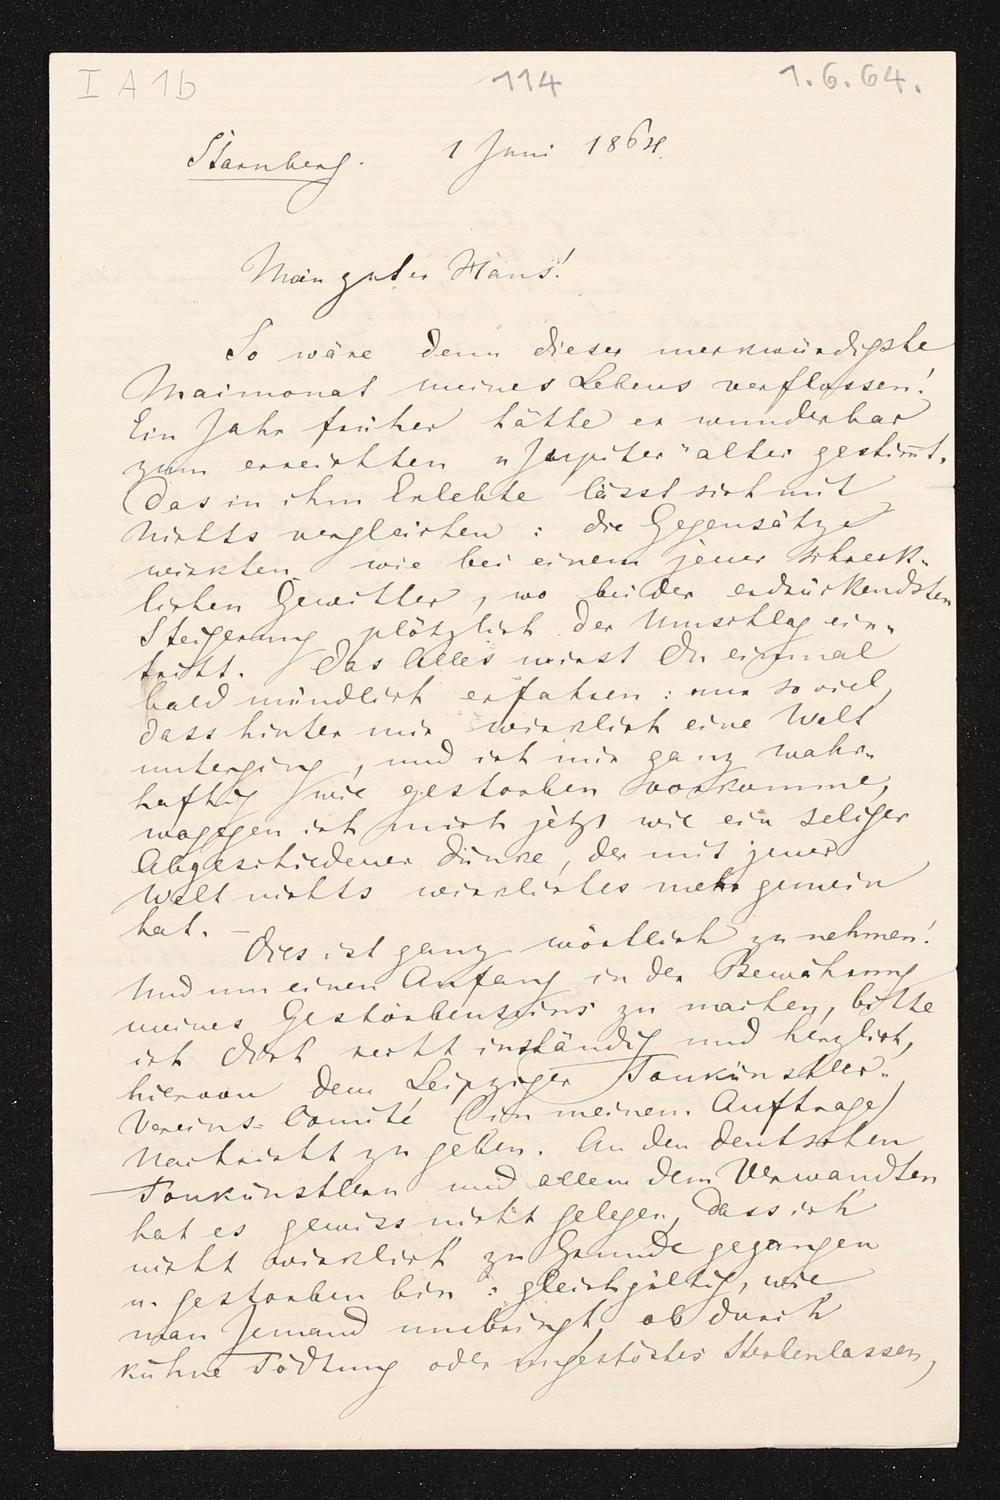 I A 1b 114 1.6.64.
Starnberg. 1 Juni 1864.
Mein guter Hans!
So wäre denn dieser merkwürdigste
Maimonat meines Lebens verflossen!
Ein Jahr früher hätte er wunderbar
zum erreichten "Jupiter"alter gestimt.
Das in ihm Erlebte lässt sich mit
Nichts vergleichen: die Gegensätze
wirkten wie bei einem jener schreck-
lichen Gewitter, wo bei der erdrückendsten
Steigerung plötzlich der Umschlag ein-
tritt. Das Alles wirst Du einmal
bald mündlich erfahren: nur so viel,
dass hinter mir wirklich eine Welt
unterging, und ich mir ganz wahr-
haftig wie gestorben vorkomme,
wogegen ich mich jetzt wie ein seliger
Abgeschiedener dünke, der mit jener
Welt nichts wirkliches mehr gemein
hat. –
Dies ist ganz wörtlich zu nehmen!
Und um einen Anfang in der Bewährung
meines Gestorbenseins zu machen, bitte
ich Dich recht inständig und herzlich,
hiervon dem Leipziger Tonkünstler-
Vereins-Comité (in meinem Auftrage)
Nachricht zu geben. An den deutschen
Tonkünstlern und allem dem Verwandten
hat es gewiss nicht gelegen, dass ich
nicht wirklich zu Grunde gegangen
u. gestorben bin: gleichgültig, wie
man Jemand umbringt, ob durch
kühne Tödtung oder ungestörtes Sterbenlassen,